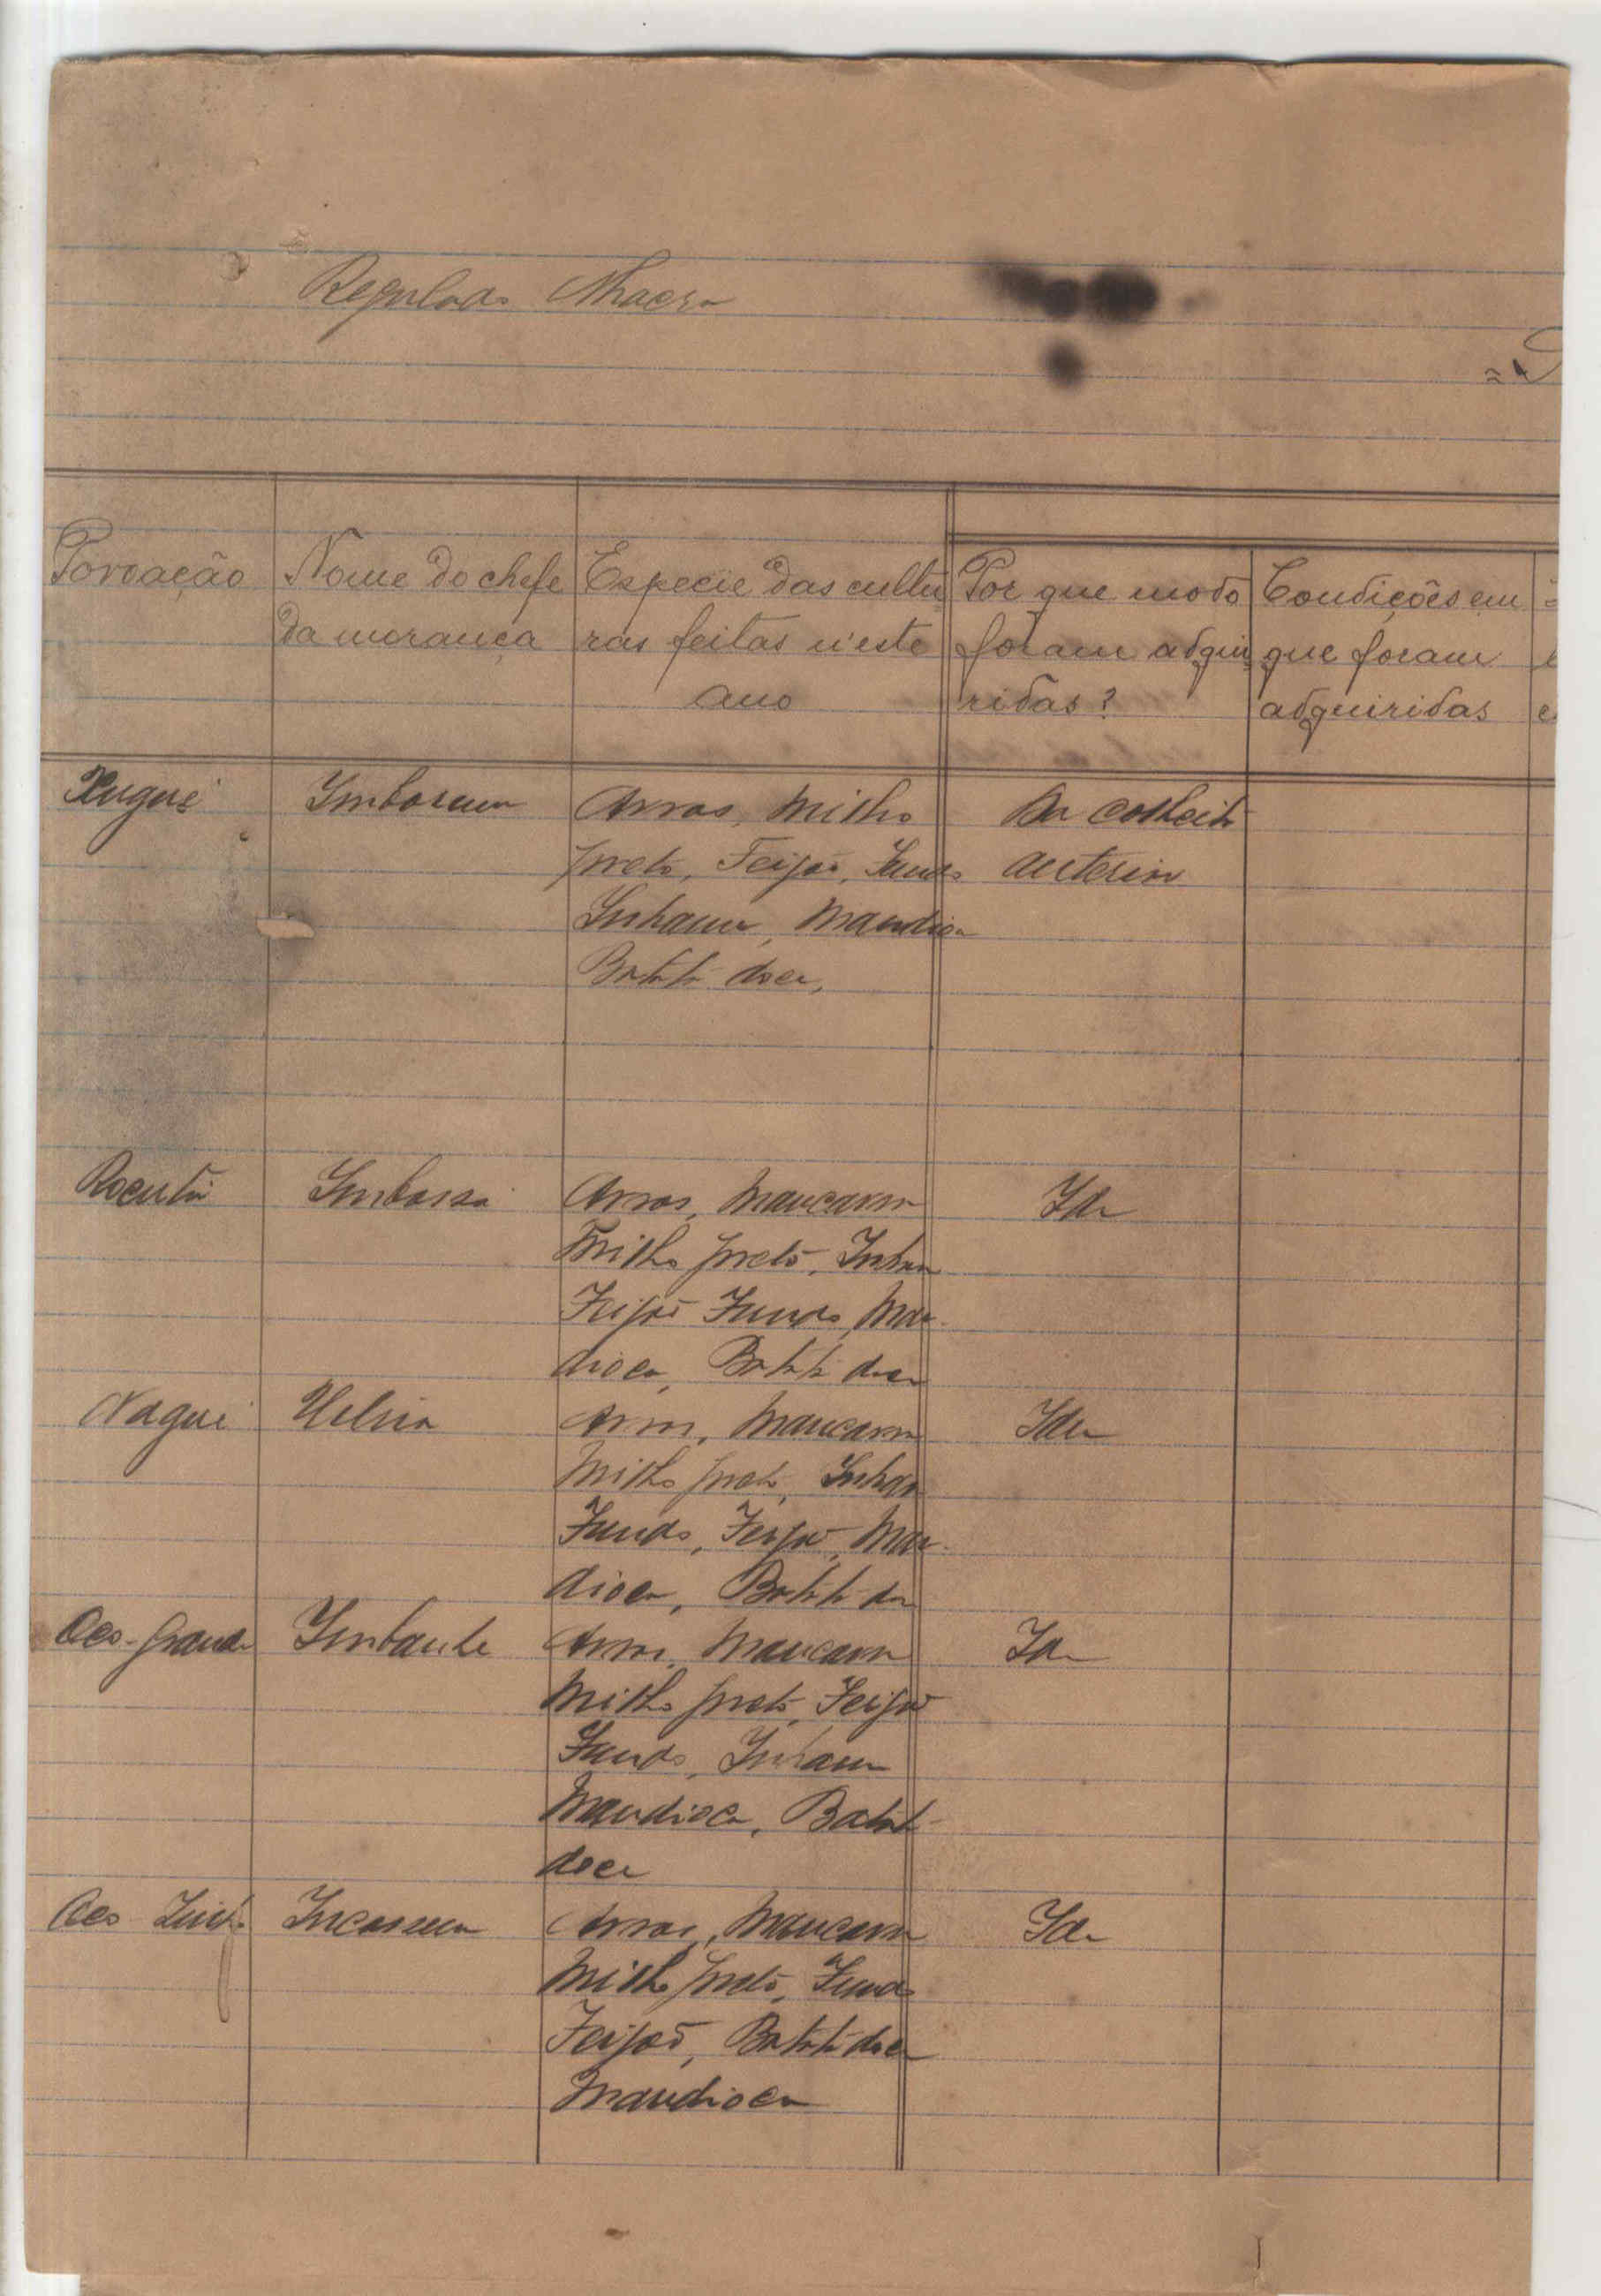 Regulado Nhacra
Povoação
Nome do chefe
da morança
Especie das cultu
ras feitas n'este
ano
Por que modo
foram adqui
ridas?
Condições em
que foram
adquiridas
Arros, Milho
preto, Feijão, Fundo
Inhame, Mandioca
Batata doce,
Da colheita
anterior
Arros, Mancarra
Milho preto, Inhame
Feijão Fundo, Man-
dioca, Batata doce
Idem
Nague
Arros, Mancarra
Milho preto, Inhame
Fundo, Feijão, Man-
dioca, Batata doce
Idem
Arros, Mancarra
Milho preto, Feijão
Fundo, Inhame
Mandioca, Batata
doce
Idem
Arros, Mancarra
Milho preto, Fundo
Feijão, Batata doce
Mandioca
Idem